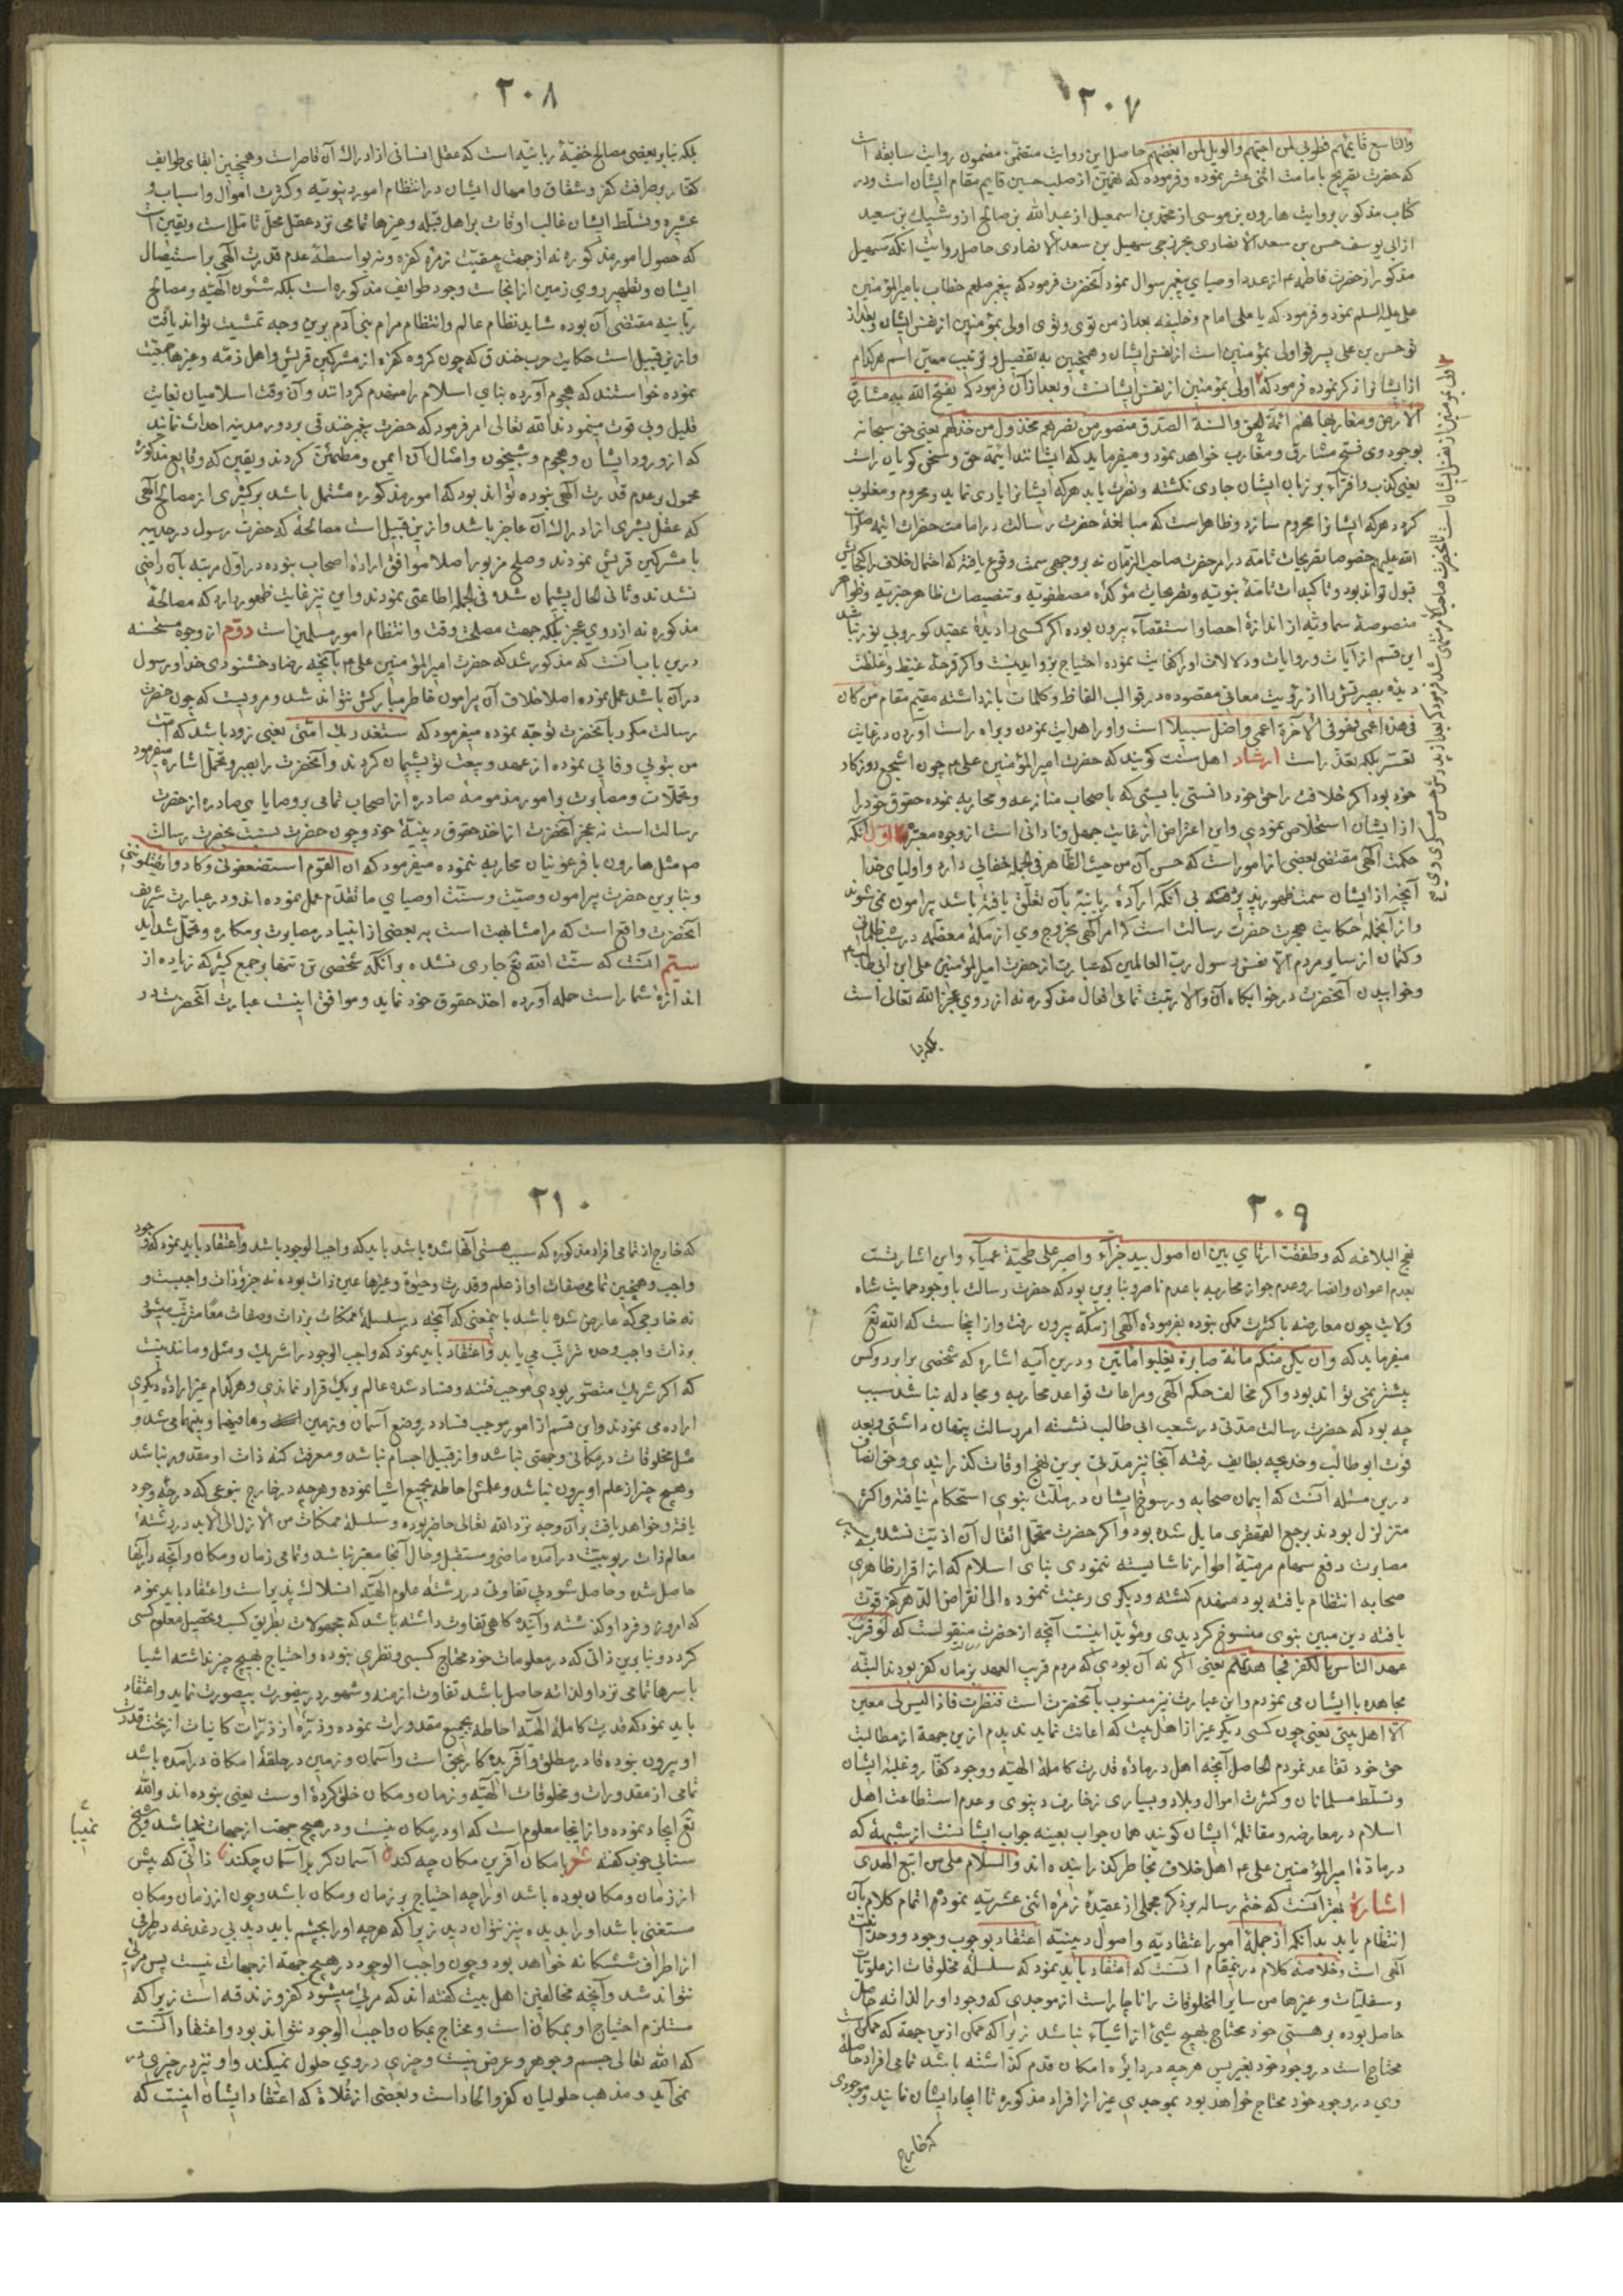 ٢٠٧
والتاسع قایمهم فطوبی لمن احبهم والویل لمن ابغضهم حاصل این روایت متضمن مضمون روایت سابقه است
که حضرت تصریح بامامت اثنی عشر نموده وفرموده که نهمین از صلب حسین قایم مقام ایشان است ودر
کتاب مذکور بروایت هارون بن موسی از محمد بن اسمعیل از عبدالله بن صالح از وشبیك بن سعید
ازابی یوسف حسن بن سعد الانصاری سهیل بن سعد الانصاری حاصل روایت آنکه سهیل
مذکور از حضرت فاطمه ع از عدد اوصیای پیغمبر سوال نمود آنحضرت فرمود که پیغمبر صلعم خطاب بامیرالمؤمنین
علی علیه السلم نمود وفرمود که یا علی امام وخلیفه بعد از من توی وتوی اولی بمؤمنین از نفس ایشان وبعد از
تو حسن بن علی پسر تو اولی بمؤمنین است از نفس ایشان وهمچنین به تفصیل وترتیب معین اسم هرکدام
از ایشانرا ذکر نموده فرمود که اولی بمؤمنین از نفس ایشانست وبعد از آن فرمود که یفتح الله به مشارق
الارض ومغاربها فهم ائمة الحق والسنة الصدق منصور من نصرهم مخذول من خذلهم یعنی حق سبحانه
بوجود وی فتح مشارق ومغارب خواهد نمود ومیفرماید که ایشانند ائمة حق وسخن گویان راست
یعنی کذب وافتراء بر زبان ایشان جاری نگشته ونصرت یابد هرکه ایشانرا یاری نماید ومحروم ومغلوب
گردد هرکه ایشانرا محروم سازد وظاهر است که مبالغۀ حضرت رسالت در امامت حضرات ائمه صلوات
الله علیهم خصوصا تصریحات تامه در امر حضرت صاحب الزمان نه بر وجهی سمت وقوع یافته که احتمال خلاف را گنجایش
قبول تواند بود وتاکیدات تامۀ نبویه مؤکده مصطفویه وتنصیصات ظاهر خبریه وظواهر
منصوصۀ سماویه از اندازۀ احصا واستقصآء بیرون بوده اگر کسی را دیدۀ عقید کور وبی نور نباشد
این قسم از آیات وروایات ودلالات او را کفایت نموده احتیاج بزواید نیست واگر قرحۀ غیظ وغلظت
دیده بصیرتش را از رؤیت معانی مقصوده در قوالب الفاظ وکلمات بازداشته مقیم مقام من کان
فی هذه اعمی فهو فی الآخرة اعمی واضل سبیلا است واو را هدایت نمودن وبراه راست آوردن در نهایت
تعسر بلکه تعذر است ارشاد اهل سنت گویند که حضرت امیرالمؤمنین علی ع م چون اشجع روزگار
خود بود اگر خلافت را حق خود دانستی بایستی که با صحاب منازعه ومحاربه نموده حقوق خود را
از ایشان استخلاص نمودی واین اعتراض از غایت جهل ونادانی است از وجوه معتبره اول آنکه
حکمت الهی مقتضی بعضی از امور است که حسن آن من حیث الظاهر فی الجمله خفائی دارد واولیای خدا
آنچه از ایشان سمت ظهور پذیرفته بی آنکه ارادۀ ربانیه بآن تعلق یافته باشد پیرامون نمی شوند
واز آنجمله حکایت هجرت حضرت رسالت است که امر الهی بخروج وی از مکۀ معظمه در شب ظلمانی
وکتمان از سایر مردم الا نفس رسول رب العالمین که عبارت از حضرت امیرالمؤمنین علی ابن ابی طالب ع م
وخوابیدن آنحضرت در خوابگاه آن والا رتبت تمامی افعال مذکوره نه از روی عجز الله تعالی است
بلکه بنا
٢٠٨
بلکه بنابر بعضی مصالح خفیۀ ربانیه است که عقل انسانی از ادراك آن قاصر است وهمچنین ابقای طوایف
کفار بر صرافت کفر وشقاق وامهال ایشان در انتظام امور دنیویه وکثرت اموال واسباب و
عشیره وتسلط ایشان غالب اوقات بر اهل قبله وغیرها تمامی نزد عقل محل تامل است ویقین است
که حصول امور مذکوره نه از جهت حقیت زمرۀ کفره ونه بواسطۀ عدم قدرت الهی بر استیصال
ایشان وتطهیر روی زمین از انجاست وجود طوایف مذکوره است بلکه شئون الهیه ومصالح
ربانیه مقتضی آن بوده شاید نظام عالم وانتظام مرام بنی آدم برین وجه تمشیت تواند یافت
وازین قبیل است حکایت حرب خندق که چون گروه کفره از مشرکین قریش واهل ذمه وغیرها جمعیت
نموده خواستند که هجوم آورده بنای اسلام را منهدم گردانند وآن وقت اسلامیان بغایت
قلیل وبی قوت مینمودند الله تعالی امر فرمود که حضرت پیغمبر خندقی بر دور مدینه احداث نمایند
که از ورود ایشان وهجوم وشبیخون وامثال آن ایمن ومطمئن گردند ویقین که وقایع مذکوره
محمول بر عدم قدرت الهی نبوده تواند بود که امور مذکوره مشتمل باشد بر کثیری از مصالح الهی
که عقل بشری از ادراك آن عاجز باشد وازین قبیل است مصالحۀ که حضرت رسول در حدیبیه
با مشرکین قریش نمودند وصلح مزبور اصلا موافق ارادۀ اصحاب نبوده در اول مرتبه بآن راضی
نشدند وثانی الحال پشیمان شده فی الجمله اطاعتی نمودند واین نیز غایت ظهور دارد که مصالحۀ
مذکوره نه از روی عجز بلکه جهت مصلحت وقت وانتظام امور مسلمین است دوم از وجوه مستحسنه
درین باب آنست که مذکور شد که حضرت امیرالمؤمنین علی ع م بآنچه رضا وخشنودی خدا ورسول
در آن باشد عمل نموده اصلا خلاف آن پیرامون خاطر مبارکش نتواند شد ومرویست که چون حضرت
رسالت مکرر بآنحضرت توجه نموده میفرمود که ستغدر بك امتی یعنی زود باشد که امت
من بتو بی وفایی نموده از عهد وبیعت تو پشیمان گردند وآنحضرت را بصبر وتحمل اشاره میفرمود
وتحملات ومصابرت وامور مذمومه صادره از اصحاب تمامی بر وصایای صادره از حضرت
رسالت است نه عجز آنحضرت از اخذ حقوق دینیۀ خود وچون حضرت نسبت بحضرت رسالت
ص مثل هارون با فرعونیان محاربه ننموده میفرمود که ان القوم استضعفونی وکادوا یقتلوننی
وبنابرین حضرت پیرامون وصیت وسنت اوصیای ما تقدم عمل نموده اند ودر عبارت شریف
آنحضرت واقع است که مرا مشابهت است به بعضی از انبیا در مصابرت بر مکاره وتحمل شداید
سیم آنست که سنت الله تع جاری نشده بر آنکه شخصی تن تنها بر جمع کثیر که زیاده از
اندازۀ شمار است حمله آورده اخذ حقوق خود نماید وموافق اینست عبارت آنحضرت در
٢٠٩
نهج البلاغه که وطفقت ارتای بین ان اصول بید جذآء واصبر علی طخیة عمیآء واین اشارتست
بعدم اعوان وانصار وعدم جواز محاربه با عدم ناصر وبنابرین بود که حضرت رسالت با وجود حمایت شاه
ولایت چون معارضه با کثرت ممکن نبوده بفرمودۀ الهی از مکه بیرون رفت واز اینجاست که الله تع
میفرماید که وان یکن منکم مائة صابرة یغلبوا مأتین ودرین آیه اشاره که شخصی برابر دو کس
بیشتر نمی تواند بود واگر مخالف حکم الهی ومراعات قواعد محاربه ومجادله نباشد سبب
چه بود که حضرت رسالت مدتی در شعب ابی طالب نشسته امر رسالت پنهان داشتی وبعد
فوت ابوطالب وخدیجه بطایف رفته آنجا نیز مدتی برین نهج اوقات گذرانیدی وحق انصاف
درین مسئله آنست که ایمان صحابه ورسوخ ایشان در ملت نبوی استحکام نیافته واکثر
متزلزل بودند برجع القهقری مایل شده بود واگر حضرت متحمل اثقال آن اذیت نشده به
مصابرت دفع سهام مرمیۀ اطوار ناشایسته ننمودی بنای اسلام که از اقرار ظاهری
صحابه انتظام یافته بود منهدم گشته ودیگری رغبت ننموده الی انقراض الدهر کفر قوت
یافته دین مبین نبوی منسوخ گردیدی ومؤید اینست آنچه از حضرت منقولست که لو قرب
عهد الناس بالکفر فجاهدتهم یعنی اگر نه آن بودی که مردم قریب العهد بزمان کفر بودند البته
مجاهده با ایشان می نمودم واین عبارت نیز منسوب بآنحضرت است فنظرت فاذا لیس لی معین
الا اهل بیتی یعنی چون کسی دیگر غیر از اهل بیت که اعانت نماید ندیدم ازین جهت از مطالبت
حق خود تقاعد نمودم الحاصل آنچه اهل در مادۀ قدرت کاملۀ الهیه ووجود کفار وغلبۀ ایشان
وتسلط مسلمانان وکثرت اموال وبلاد وبسیاری زخارف دنیوی وعدم استطاعت اهل
اسلام در معارضه ومقاتلۀ ایشان گویند همان جواب بعینه جواب ایشانست از شبهۀ که
در مادۀ امیرالمؤمنین علی ع م اهل خلاف بخاطر گذرانیده اند والسلام علی من اتبع الهدی
اشارة بهتر آنست که ختم رساله بر ذکر مجملی از عقیدۀ زمرۀ اثنی عشریه نموده اتمام کلام بآن
انتظام یابد بدانکه از جملۀ امور اعتقادیه واصول دینیه اعتقاد بوجوب وجود ووحدانیت
الهی است وخلاصۀ کلام درینمقام آنست که اعتقاد باید نمود که سلسلۀ مخلوقات از علویات
وسفلیات وغیرها من سایر المخلوقات را ناچار است از موجدی که وجود او را لذاته حاصل
حاصل بوده بر هستی خود محتاج بهیچ شیئ از اشیآء نباشد زیراکه ممکن ازین جهت که ممکن است
محتاج است در وجود خود بغیر پس هرچه در دایرۀ امکان قدم گذاشته باشد تمامی افراد حاصلۀ
وی در وجود خود محتاج خواهد بود بموجدی غیر از افراد مذکوره تا ایجاد ایشان نمایند وموجودی
که خارج
٢١٠
که خارج از تمامی افراد مذکوره که سبب هستی آنها شده باشد باید که واجب الوجود باشد واعتقاد باید نمود که وجود
واجب وهمچنین تمامی صفات او از علم وقدرت وحیوة وغیرها عین ذات بوده نه جزو ذات واجبیت و
نه خارجی که عارض شده باشد باینمعنی که آنچه در سلسلۀ ممکنات بر ذات وصفات معا مترتب میشود
بر ذات واجب وحده ترتب می یابد واعتقاد باید نمود که واجب الوجود را شریك ومثل ومانند نیست
که اگر شریك متصور بودی موجب فتنه وفساد شده عالم بر یك قرار نماندی وهرکدام غیر ارادۀ دیگری
اراده می نمودند واین قسم از امور موجب فساد در وضع آسمان وزمین وما فیهما وبینهما می شد و
مثل مخلوقات در مکانی وجهتی نباشد واز قبیل اجسام نباشد ومعرفت کنه ذات او مقدور نباشد
وهیچ چیز از علم او بیرون نباشد وعلمش احاطه بجمیع اشیا نموده وهرچه در خارج بنوعی که درجۀ وجود
یافته وخواهد یافت بر آن وجه نزد الله تعالی حاضر بوده وسلسلۀ ممکنات من الازل الی الابد در رشته
معالم ذات ربوبیت در آمده ماضی ومستقبل وحال آنجا معتبر نباشد وتمامی زمان ومکان وآنچه در آنها
حاصل شده وحاصل شود بی تفاوتی در رشتۀ علوم الهیه انسلاك پذیر است واعتقاد باید نمود
که امروز وفردا وگذشته وآینده گاهی تفاوت داشته باشد که مجهولات بطریق کسب وتحصیل معلوم کسی
گردد وبنابرین ذاتی که در معلومات خود محتاج کسبی ونظری نبوده واحتیاج بهیچ چیز نداشته اشیا
باسرها تمامی نزد او لذاته حاصل باشد تفاوت ازمنه وشهور درینصورت بیصورت نماید واعتقاد
باید نمود که قدرت کاملۀ الهیه احاطه بجمیع مقدورات نموده وذره از ذرات کاینات از تحت قدرت
او بیرون نبوده قادر مطلق وآفریدگار بحق است وآسمان وزمین در حلقۀ امکان در آمده باشد
تمامی از مقدورات ومخلوقات الهیه وزمان ومکان خلق کردۀ اوست یعنی نبوده اند والله
تع ایجاد نموده واز اینجا معلوم است که او در مکان نیست ودر هیچ جهت از جهات نمیباشد وشیخ
نمیبا
سنایی خوب گفته شعر با مکان آفرین مکان چه کند آسمان گر بر آسمان چکند ذاتی که پیش
از زمان ومکان بوده باشد او را چه احتیاج بر زمان ومکان باشد وچون از زمان ومکان
مستغنی باشد او را بدیده نیز نتوان دید زیراکه هرچه او را بچشم باید دید بی دغدغه در طرفی
از اطراف ششگانه خواهد بود وچون واجب الوجود در هیچ جهة از جهات نیست پس مرئی
نتواند شد وآنچه مخالفین اهل بیت گفته اند که مرئی میشود کفر وزندقه است زیراکه
مستلزم احتیاج او بمکان است ومحتاج بمکان واجب الوجود نتواند بود واعتقاد آنست
که الله تعالی جسم وجوهر وعرض نیست وچیزی در وی حلول نمیکند واو نیز در چیزی در
نمی آید ومذهب حلولیان کفر والحاد است وبعضی از غلاة که اعتقاد ایشان اینست که